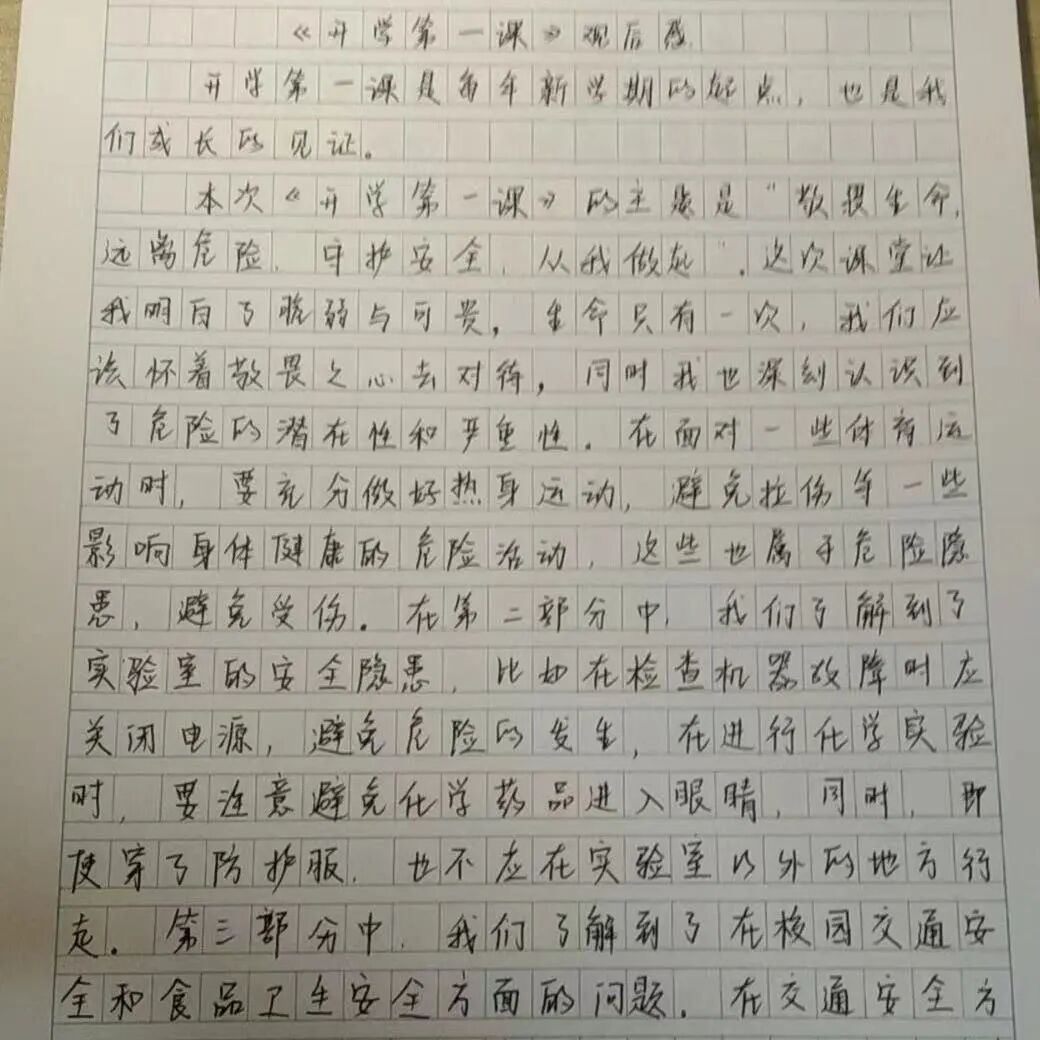 《开学第一课》观后感
开学第一课是每年新学期的起点，也是我
们成长的见证。
本次《开学第一课》的主题是"敬畏生命，
远离危险，守护安全，从我做起"。这次课堂让
我明白了脆弱与可贵，生命只有一次，我们应
该怀着敬畏之心去对待，同时我也深刻认识到
了危险的潜在性和严重性。在面对一些体育运
动时，要充分做好热身运动，避免拉伤等一些
影响身体健康的危险活动，这些也属于危险隐
患，避免受伤。在第二部分中，我们了解到了
实验室的安全隐患，比如在检查机器故障时应
关闭电源，避免危险的发生，在进行化学实验
时，要注意避免化学药品进入眼睛，同时，即
使穿了防护服，也不应在实验室以外的地方行
走。第三部分中，我们了解到了在校园交通安
全和食品卫生安全方面的问题。在交通安全方